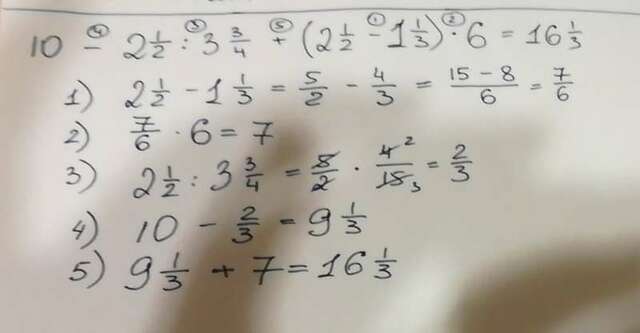 10 - 2 1/2 : 3 3/4 + (2 1/2 - 1 1/3) · 6 = 16 1/3
1) 2 1/2 - 1 1/3 = 5/2 - 4/3 = (15 - 8)/6 = 7/6
2) 7/6 · 6 = 7
3) 2 1/2 : 3 3/4 = 5/2 · 4 2/15 3 = 2/3
4) 10 - 2/3 = 9 1/3
5) 9 1/3 + 7 = 16 1/3